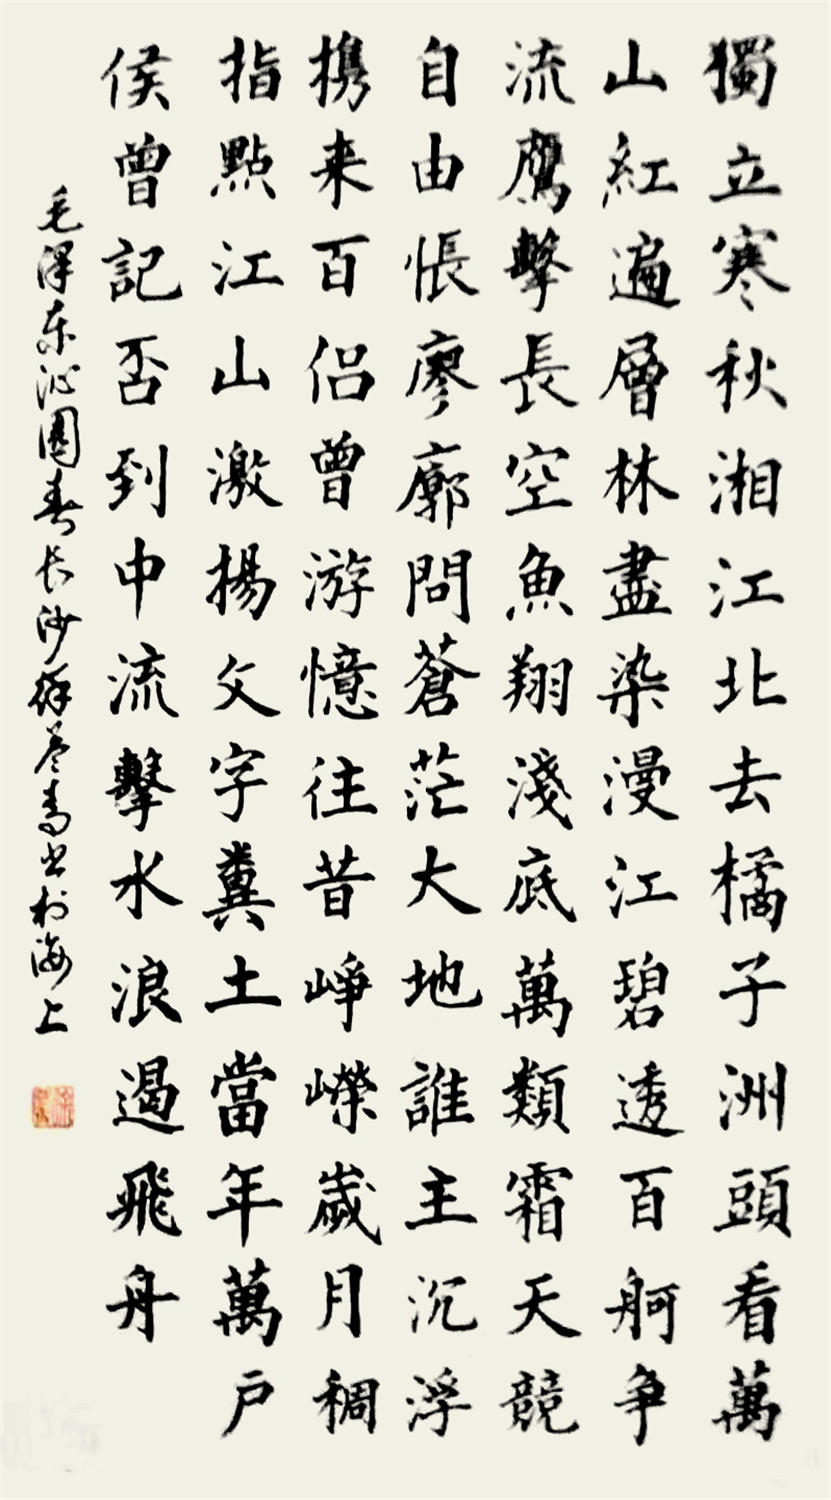 獨立寒秋湘江北去橘子洲頭看萬
山紅遍層林盡染漫江碧透百舸争
流鷹擊長空魚翔淺底萬類霜天競
自由悵廖廓問蒼茫大地誰主沉浮
携来百侣曾游憶往昔崢嶸歲月稠
指點江山激揚文字糞土當年萬户
侯曾記否到中流擊水浪遏飛舟
毛泽东沁園春长沙徐书於海上